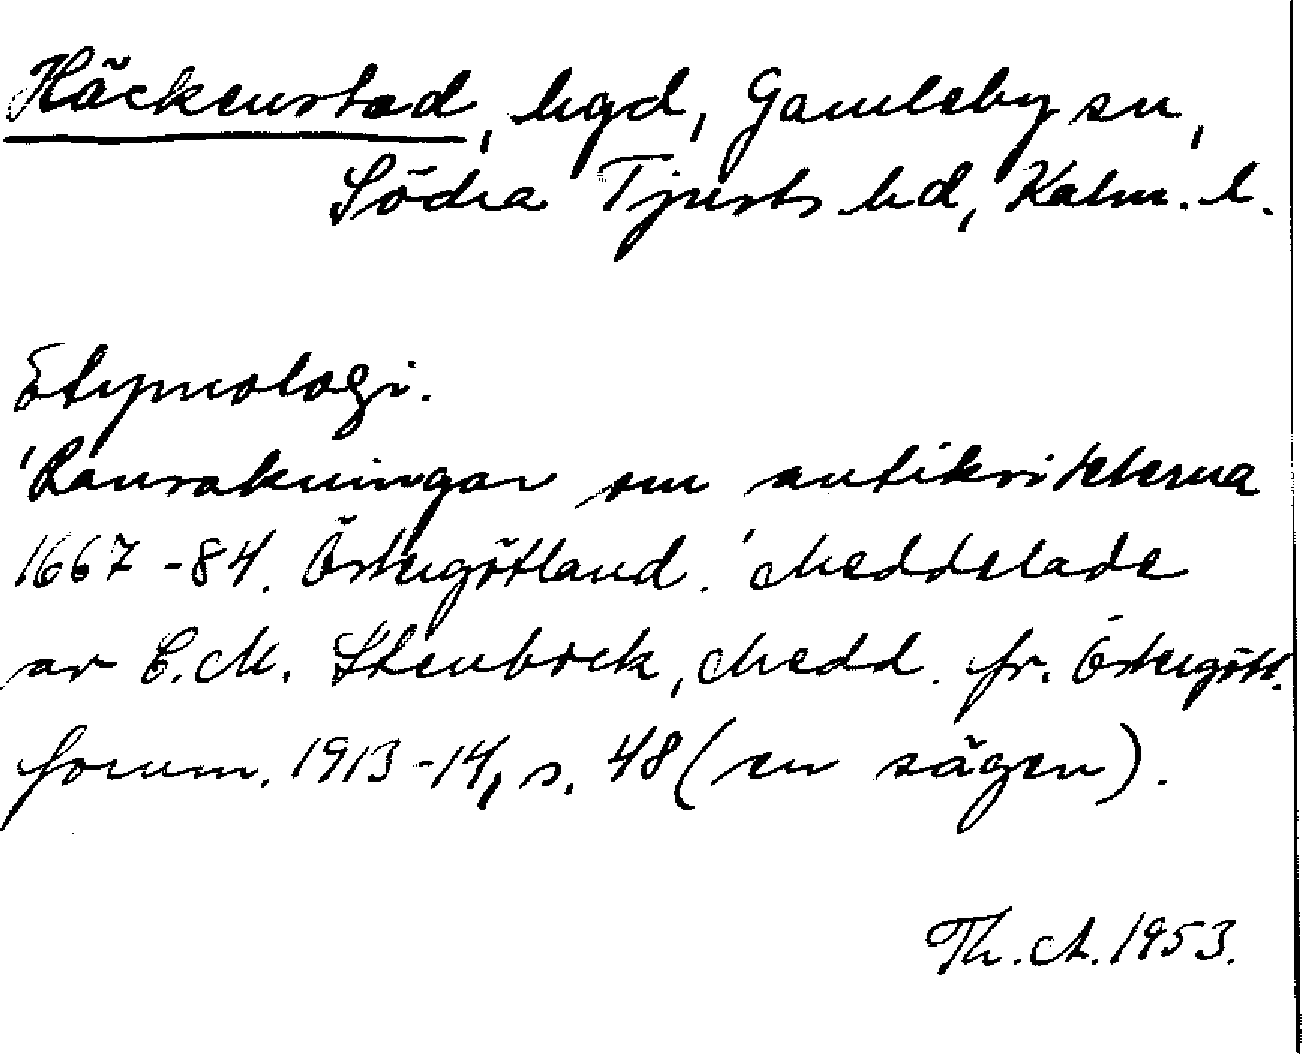 Häckenstad, hgd, Gamleby sn,
Södra Tjusts hd, Kalm. l.
Etymologi.
'Ransakningar om antikviteterna
1667-84. Östergötland.' Meddelade
av C. M. Stenbock, Medd. fr. Östergötl.
fornm. 1913-14, s. 48 (en sägen).
Th. A. 1953.